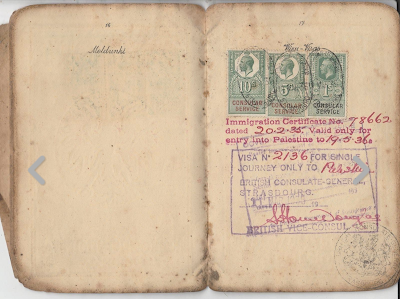 16
17
10/
5/
1/
CONSULAR
SERVICE
CONSULAR
SERVICE
CONSULAR
SERVICE
Immigration Certificate No. 78662
dated 20-2-35. Valid only for
entry into Palestine to 19.5.36
VISA No 2136 FOR SINGLE
JOURNEY ONLY TO Palestine
BRITISH CONSULATE-GENERAL,
STRASBOURG.
BRITISH VICE-CONSUL